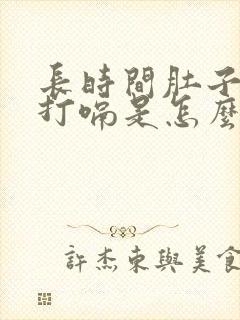 長時間肚子
打嗝是怎麼
許杰東與美食